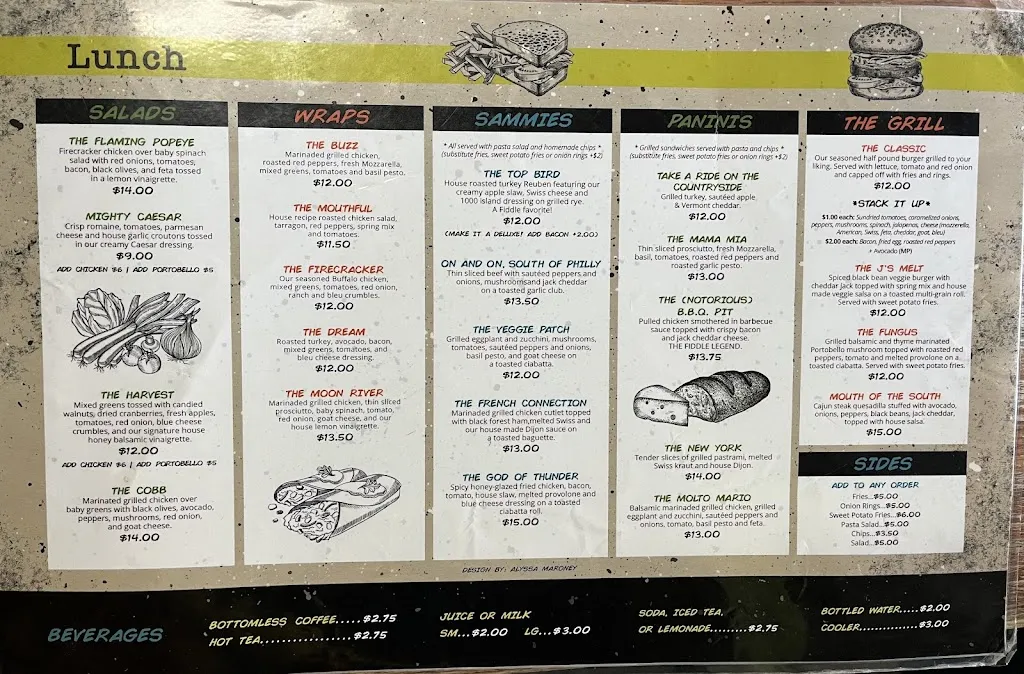 Lunch
SALADS
THE FLAMING POPEYE
Firecracker chicken over baby spinach
salad with red onions, tomatoes,
bacon, black olives, and feta tossed
in a lemon vinaigrette.
$14.00
MIGHTY CAESAR
Crisp romaine, tomatoes, parmesan
cheese and house garlic croutons tossed
in our creamy Caesar dressing.
$9.00
ADD CHICKEN $6 | ADD PORTOBELLO $5
THE HARVEST
Mixed greens tossed with candied
walnuts, dried cranberries, fresh apples,
tomatoes, red onion, blue cheese
crumbles, and our signature house
honey balsamic vinaigrette.
$12.00
ADD CHICKEN $6 | ADD PORTOBELLO $5
THE COBB
Marinated grilled chicken over
baby greens with black olives, avocado,
peppers, mushrooms, red onion,
and goat cheese.
$14.00
WRAPS
THE BUZZ
Marinaded grilled chicken,
roasted red peppers, fresh Mozzarella,
mixed greens, tomatoes and basil pesto.
$12.00
THE MOUTHFUL
House recipe roasted chicken salad,
tarragon, red peppers, spring mix
and tomatoes.
$11.50
THE FIRECRACKER
Our seasoned Buffalo chicken,
mixed greens, tomatoes, red onion,
ranch and bleu crumbles.
$12.00
THE DREAM
Roasted turkey, avocado, bacon,
mixed greens, tomatoes, and
bleu cheese dressing.
$12.00
THE MOON RIVER
Marinaded grilled chicken, thin sliced
prosciutto, baby spinach, tomato,
red onion, goat cheese, and our
house lemon vinaigrette.
$13.50
SAMMIES
* All served with pasta salad and homemade chips *
(substitute fries, sweet potato fries or onion rings +$2)
THE TOP BIRD
House roasted turkey Reuben featuring our
creamy apple slaw, Swiss cheese and
1000 island dressing on grilled rye.
A Fiddle favorite!
$12.00
(MAKE IT A DELUXE! ADD BACON +2.00)
ON AND ON, SOUTH OF PHILLY
Thin sliced beef with sautéed peppers and
onions, mushroomsand jack cheddar
on a toasted garlic club.
$13.50
THE VEGGIE PATCH
Grilled eggplant and zucchini, mushrooms,
tomatoes, sautéed peppers and onions,
basil pesto, and goat cheese on
a toasted ciabatta.
$12.00
THE FRENCH CONNECTION
Marinaded grilled chicken cutlet topped
with black forest ham,melted Swiss and
our house made Dijon sauce on
a toasted baguette.
$13.00
THE GOD OF THUNDER
Spicy honey-glazed fried chicken, bacon,
tomato, house slaw, melted provolone and
blue cheese dressing on a toasted
ciabatta roll.
$15.00
PANINIS
* Grilled sandwiches served with pasta and chips *
(substitute fries, sweet potato fries or onion rings +$2)
TAKE A RIDE ON THE
COUNTRYSIDE
Grilled turkey, sautéed apple,
& Vermont cheddar.
$12.00
THE MAMA MIA
Thin sliced prosciutto, fresh Mozzarella,
basil, tomatoes, roasted red peppers and
roasted garlic pesto.
$13.00
THE (NOTORIOUS)
B.B.Q. PIT
Pulled chicken smothered in barbecue
sauce topped with crispy bacon
and jack cheddar cheese.
THE FIDDLE LEGEND.
$13.75
THE NEW YORK
Tender slices of grilled pastrami, melted
Swiss kraut and house Dijon.
$14.00
THE MOLTO MARIO
Balsamic marinated grilled chicken, grilled
eggplant and zucchini, sautéed peppers and
onions, tomato, basil pesto and feta.
$13.00
THE GRILL
THE CLASSIC
Our seasoned half pound burger grilled to your
liking. Served with lettuce, tomato and red onion
and capped off with fries and rings.
$12.00
*STACK IT UP*
$1.00 each: Sundried tomatoes, caramelized onions,
peppers, mushrooms, spinach, jalapenos, cheese (mozzerella,
American, Swiss, feta, cheddar, goat, bleu)
$2.00 each: Bacon, fried egg, roasted red peppers
+ Avocado (MP)
THE J'S MELT
Spiced black bean veggie burger with
cheddar Jack topped with spring mix and house
made veggie salsa on a toasted multi-grain roll.
Served with sweet potato fries.
$12.00
THE FUNGUS
Grilled balsamic and thyme marinated
Portobello mushroom topped with roasted red
peppers, tomato and melted provolone on a
toasted ciabatta. Served with sweet potato fries.
$12.00
MOUTH OF THE SOUTH
Cajun steak quesadilla stuffed with avocado,
onions, peppers, black beans, jack cheddar,
topped with house salsa.
$15.00
SIDES
ADD TO ANY ORDER
Fries...$5.00
Onion Rings...$5.00
Sweet Potato Fries...$6.00
Pasta Salad...$5.00
Chips...$3.50
Salad...$5.00
DESIGN BY: ALYSSA MARONEY
BEVERAGES
BOTTOMLESS COFFEE.....$2.75
HOT TEA.................$2.75
JUICE OR MILK
SM...$2.00 LG...$3.00
SODA, ICED TEA,
OR LEMONADE.........$2.75
BOTTLED WATER.....$2.00
COOLER...............$3.00